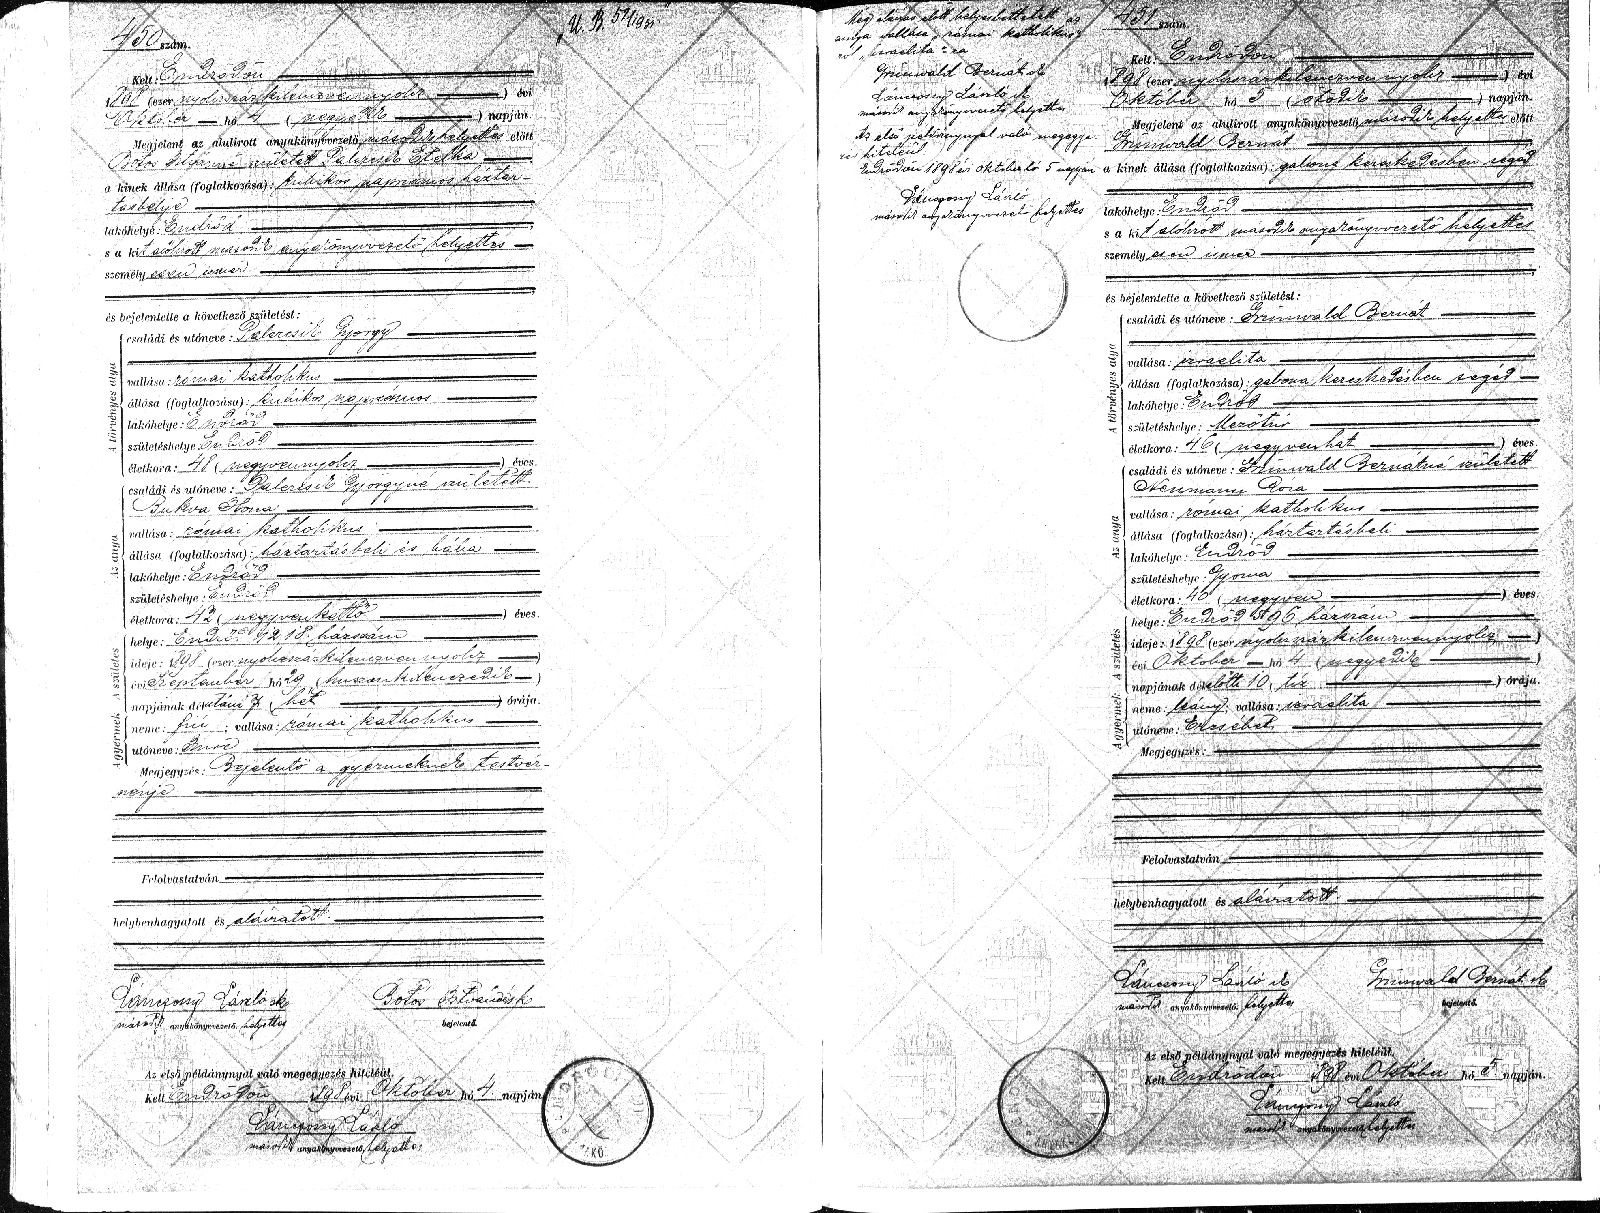 450 szám.
"U. B. 571/931"
Kelt: Endrődön
1898 (ezer nyolcszázkilencvennyolc) évi
Október hó 4 (negyedik) napján.
Megjelent az alulirott anyakönyvvezető második helyettes előtt
Botos Istvánné született Palecsik Etelka
a kinek állása (foglalkozása): kubikos napszámos háztar-
tásbelije
lakóhelye: Endrőd
s a kit alólirott második anyakönyvvezető helyettes
személyesen ismer
és bejelentette a következő születést:
A törvényes atya
családi és utóneve: Palecsik György
vallása: római katholikus
állása (foglalkozása): kubikos napszámos
lakóhelye: Endrőd
születéshelye: Endrőd
életkora: 48 (negyvennyolc) éves.
Az anya
családi és utóneve: Palecsik Györgyné született
Bukva Ilona
vallása: római katholikus
állása (foglalkozása): háztartásbeli és bába
lakóhelye: Endrőd
születéshelye: Endrőd
életkora: 42 (negyvenkettő) éves.
A születés
helye: Endrőd 1218. házszám
ideje: 1898 (ezer nyolcszázkilencvennyolc)
évi Szeptember hó 29 (huszonkilencedik)
napjának délutáni 7 (hét) órája.
A gyermek
neme: fiú; vallása: római katholikus
utóneve: Imre
Megjegyzés: Bejelentő a gyermeknek testvér-
nénje
Felolvastatván
helybenhagyatott és aláiratott.
Lánczony László sk Botos Istvánné sk
második anyakönyvvezető helyettes bejelentő.
Az első példánynyal való megegyezés hiteléül.
Kelt Endrődön 1898 évi Október hó 4 napján
Lánczony László
második anyakönyvvezető helyettes
Még aláirás előtt helyesbittetett az
anya vallása "római katholikus"
ról "izraelita"-ra
Grünwald Bernát sk
Lánczony László sk
második anyakönyvvezető helyettes
Az első példánynyal való megegye-
zés hiteléül
Endrődön 1898 évi október hó 5 napján
Lánczony László
második anyakönyvvezető helyettes
451 szám.
Kelt: Endrődön
1898 (ezer nyolcszázkilencvennyolc) évi
Október hó 5 (ötödik) napján.
Megjelent az alulirott anyakönyvvezető második helyettes előtt
Grünwald Bernát
a kinek állása (foglalkozása): gabona kereskedésben segéd
lakóhelye: Endrőd
s a kit alólirott második anyakönyvvezető helyettes
személyesen ismer
és bejelentette a következő születést:
A törvényes atya
családi és utóneve: Grünwald Bernát
vallása: izraelita
állása (foglalkozása): gabona kereskedésben segéd
lakóhelye: Endrőd
születéshelye: Mezőtúr
életkora: 46 (negyvenhat) éves.
Az anya
családi és utóneve: Grünwald Bernátné született
Neumann Róza
vallása: római katholikus
állása (foglalkozása): háztartásbeli
lakóhelye: Endrőd
születéshelye: Gyoma
életkora: 40 (negyven) éves.
A születés
helye: Endrőd 596 házszám
ideje: 1898 (ezer nyolcszázkilencvennyolc)
évi Október hó 4 (negyedik)
napjának délelőtti 10 (tíz) órája.
A gyermek
neme: leány; vallása: izraelita
utóneve: Erzsébet
Megjegyzés:
Felolvastatván
helybenhagyatott és aláiratott.
Lánczony László sk Grünwald Bernát sk
második anyakönyvvezető helyettes bejelentő.
Az első példánynyal való megegyezés hiteléül.
Kelt Endrődön 1898 évi Október hó 5 napján.
Lánczony László
második anyakönyvvezető helyettes